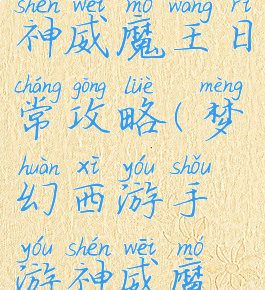 shén wēi mó wáng rì
神威魔王日
cháng gōng lüè mèng
常攻略(梦
huàn xī yóu shǒu
幻西游手
yóu shén wēi mó
游神威魔